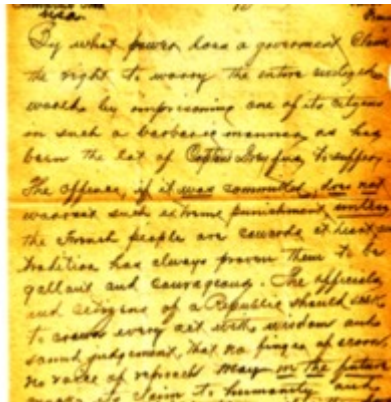 By what power does a goverment claim
the right to worry the entire civilized
world by imprisoning one of its citizens
in such a barbaric manner as has
been the lot of Captain Dreyfus, to suffer,
The offence, if it was committed, does not
warrant such extreme punishment, unless
the French people are cowards at heart
tradition has always proven them to be
gallant and courageous. The officials
and citizens of a Republic should
to crown every act with wisdom and
sound judgement, that no finger of scorn,
no voice of reproach may in the future
its claim to humanity and